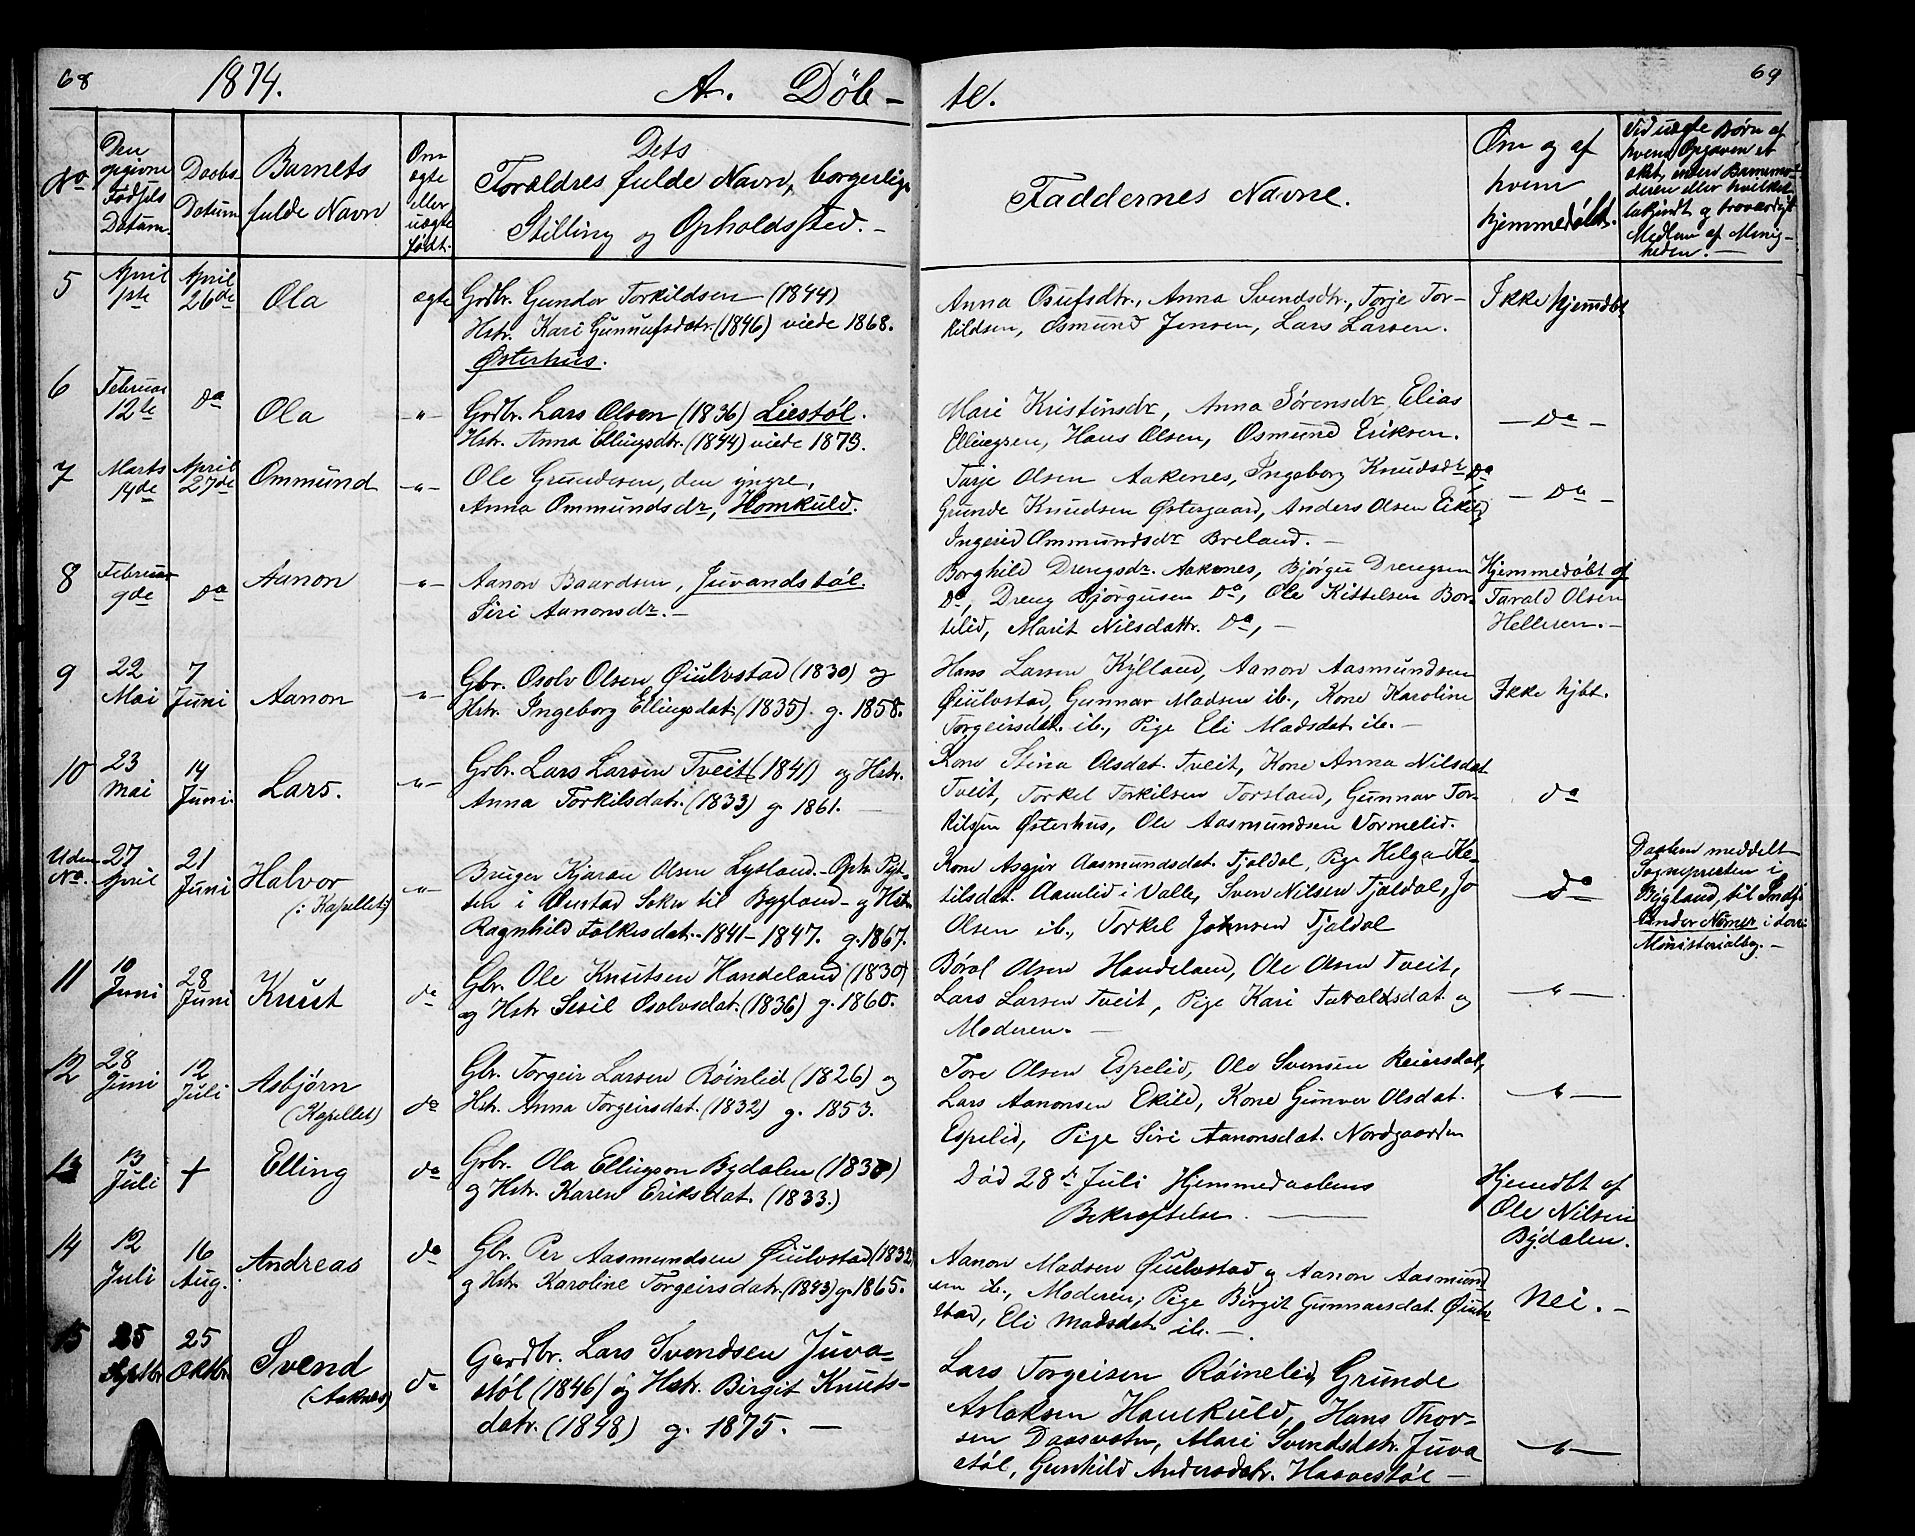 68 1874. A. Döb- te. 69
No
Den opgivne Fødsels Datum.
Daabs Datum
Barnets fulde Navn
Om ægte eller uægte født.
Dets Forældres fulde Navn, borgerlige Stilling og Opholdssted.-
Faddernes Navne.
Om og af hvem hjemmedøbt.
Vid uægte Børn af hvem Opgaven er
Medlem af Menig-
heden.-
5 April 1ste April 26de Ola ægte Grdbr. Gunder Torkildsen (1844)
Hstr. Kari Gunnufsdatr. (1846) viede 1868.
Østerhus.
Anna Osufsdtr., Anna Svendsdtr., Torje Tor-
kildsen, Osmund Jensen, Lars Larsen.
Ikke hjemdbt
6 Februar 12te do Ola -"- Grdbr. Lars Olsen (1836) Liestøl.
Hstr. Anna Ellingsdtr. (1844) viede 1873.
Mari Kristinsdr, Anna Sørensdr, Elias
Ellingsen, Hans Olsen, Osmund Eriksen.
- do -
7 Marts 14de April 27de Ommund -"- Ole Grundesen, den yngre,
Anna Ommundsdr, Homkuld.
Tarje Olsen Aakenes, Ingeborg Knudsdr do,
Grunde Knudsen Østergaard, Anders Olsen Eikild,
Ingerid Ommundsdr Breland.-
- do -
8 Februar 9de do Aanon -"- Aanon Baardsen, Juvandstøl.
Siri Aanonsdr.-
Borghild Drengsdr. Aakenes, Bjørgu Drengsen
do, Dreng Bjørgusen do, Ole Kittelsen Bor-
telid, Marit Nilsdattr. do,-
Hjemmedøbt af
Tarald Olsen
Helleren.-
9 22 Mai 7 Juni Aanon -"- Gbr. Osolv Olsen Øiulvstad (1830) og
Hstr. Ingeborg Ellingsdat. (1835) g. 1858.
Hans Larsen Kylland, Aanon Aasmundsen
Øiulvstad, Gunnar Madsen ib., Kone Karoline
Torgeirsdat. ib., Pige Eli Madsdat ib.-
Ikke hjbt.
10 23 Mai 14 Juni. Lars. -"- Grbr. Lars Larsen Tveit (1841) og Hstr.
Anna Torkilsdatr. (1833) g. 1861.-
Kone Stina Olsdat. Tveit, Kone Anna Nilsdat
Tveit, Torkel Torkilsen Torsland, Gunnar Tor-
kilsen Østerhus, Ole Aasmundsen Tormelid.
do
Uden No. 27 April 21 Juni Halvor
(: Kapellet:)
-"- Bruger Kjøran Olsen Lysland.- Oph. Pyt-
ten i Øustad Sokn til Bygland- og Hstr
Ragnhild Folkesdat.- 1841-1847. g. 1867.
Kone Asgjer Aasmundsdat. Tjaldal, Pige Helga Ke-
tilsdat. Aamlid i Valle, Sven Nilsen Tjaldal, Jo
Olsen ib., Torkel Johnsen Tjaldal
do
Daaben meddelt
Sognepresten i
Bygland, til Indf.
under Nomer i derv.
Ministerialbg.-
11 10 Juni 28 Juni Knut do Gbr. Ole Knutsen Handeland (1830)
og Hstr Sesil Osolvsdat. (1836) g. 1860.
Børol Olsen Handeland, Ole Olsen Tveit,
Lars Larsen Tveit, Pige Kari Taraldsdat. og
Moderen.-
-"-
12 28 Juni 12 Juli Asbjørn
(Kapellet)
do Gbr. Torgeir Larsen Röinlid (1826) og
Hstr. Anna Torgeirsdat. (1832) g. 1853.
Tore Olsen Espelid, Ole Svensen Reiersdal,
Lars Aanonsen Ekild, Kone Gunver Olsdat.
Espelid, Pige Siri Aanonsdat. Nordgaarden
-"-
13 13 Juli + Elling do Grbr. Ola Ellingson Bydalen (1830)
og Hstr. Karen Eriksdat. (1833.)
Död 28de Juli Hjemmedaabens
Bekræftelse.
Hjemdbt af
Ole Nilsen
Bydalen.
14 12 Juli 16 Aug. Andreas do Gbr. Per Aasmundsen Øiulvstad (1832)
og Hstr. Karoline Torgeirsdatr. (1843) g. 1865.
Aanon Madsen Øiulvstad og Aanon Aasmund-
sen ib., Moderen, Pige Birgit Gunnarsdat. Øiulv-
stad, Eli Madsdat ib.-
Nei.-
15 25 Septbr. 25 Oktbr. Svend
(Aaknes)
do Gardbr. Lars Svendsen Juva-
støl (1846) og Hstr. Birgit Knuts-
datr. (1848) g. 1875.-
Lars Torgeisen Röinelid, Grunde
Aslaksen Homkuld, Hans Thor-
sen Daasvatn, Mari Svendsdatr. Juva
støl, Gunhild Andersdatr. Haavestøl-
-"-